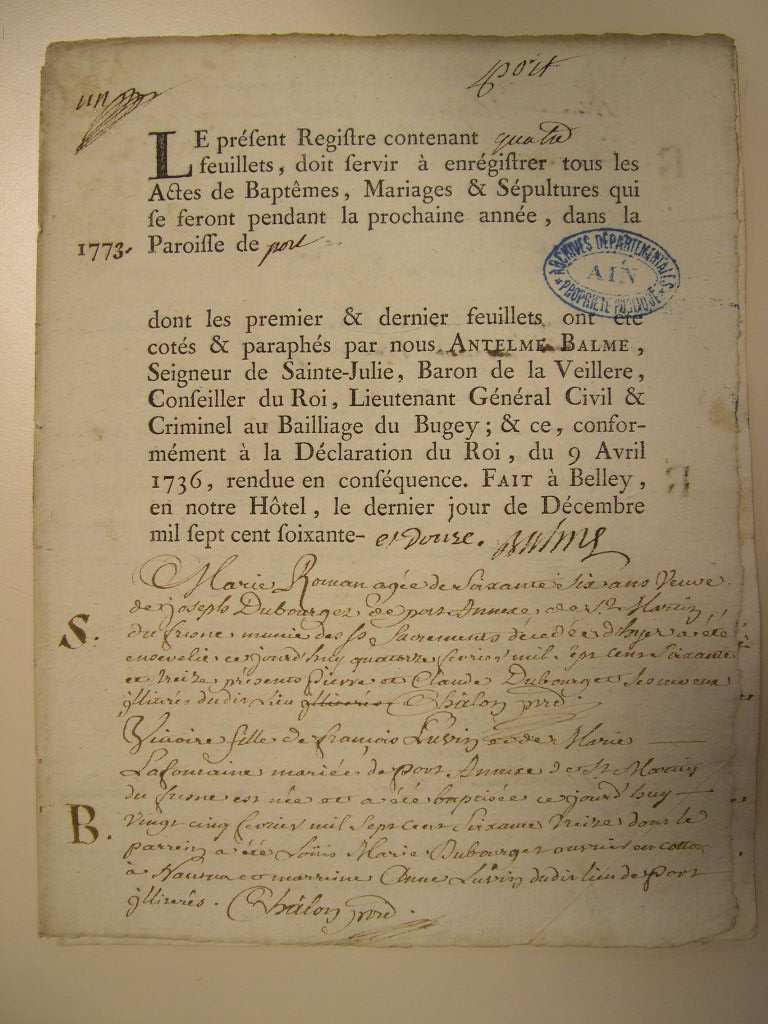 un
port
LE préſent Regiſtre contenant quatre
feuillets, doit ſervir à enrégiſtrer tous les
Actes de Baptêmes, Mariages & Sépultures qui
ſe feront pendant la prochaine année, dans la
1773. Paroiſſe de port
ARCHIVES DÉPARTEMENTALES
AIN
PROPRIÉTÉ PUBLIQUE
dont les premier & dernier feuillets ont été
cotés & paraphés par nous ANTELME BALME,
Seigneur de Sainte-Julie, Baron de la Veillere,
Conſeiller du Roi, Lieutenant Général Civil &
Criminel au Bailliage du Bugey; & ce, confor-
mément à la Déclaration du Roi, du 9 Avril
1736, rendue en conſéquence. FAIT à Belley,
en notre Hôtel, le dernier jour de Décembre
mil ſept cent ſoixante- et douze. Balme
Marie Roman agée de Soixante Six ans Veuve
de joseph Dubourget de port Annexe de St Martin
S. du frêne munie des Sacrements décédée d'hyer a été
ensevelie ce jourd'huy quatorze fevrier mil Sept cent Soixante
et treize présents pierre et Claude Dubourget ses neveux
illiterés dudit lieu Châlon
fille de françois Luvin et de Marie
Lafontaine mariés de port Annexe de St Martin
du frêne est née et a été baptisée ce jourd'huy
B. Vingt cinq fevrier mil Sept cent Soixante treize dont le
parrein a été Loüis Marie Dubourget ouvrier en cotton
à Nantua et marreine Anne Luvin dudit lieu de port
illiterés. Châlon